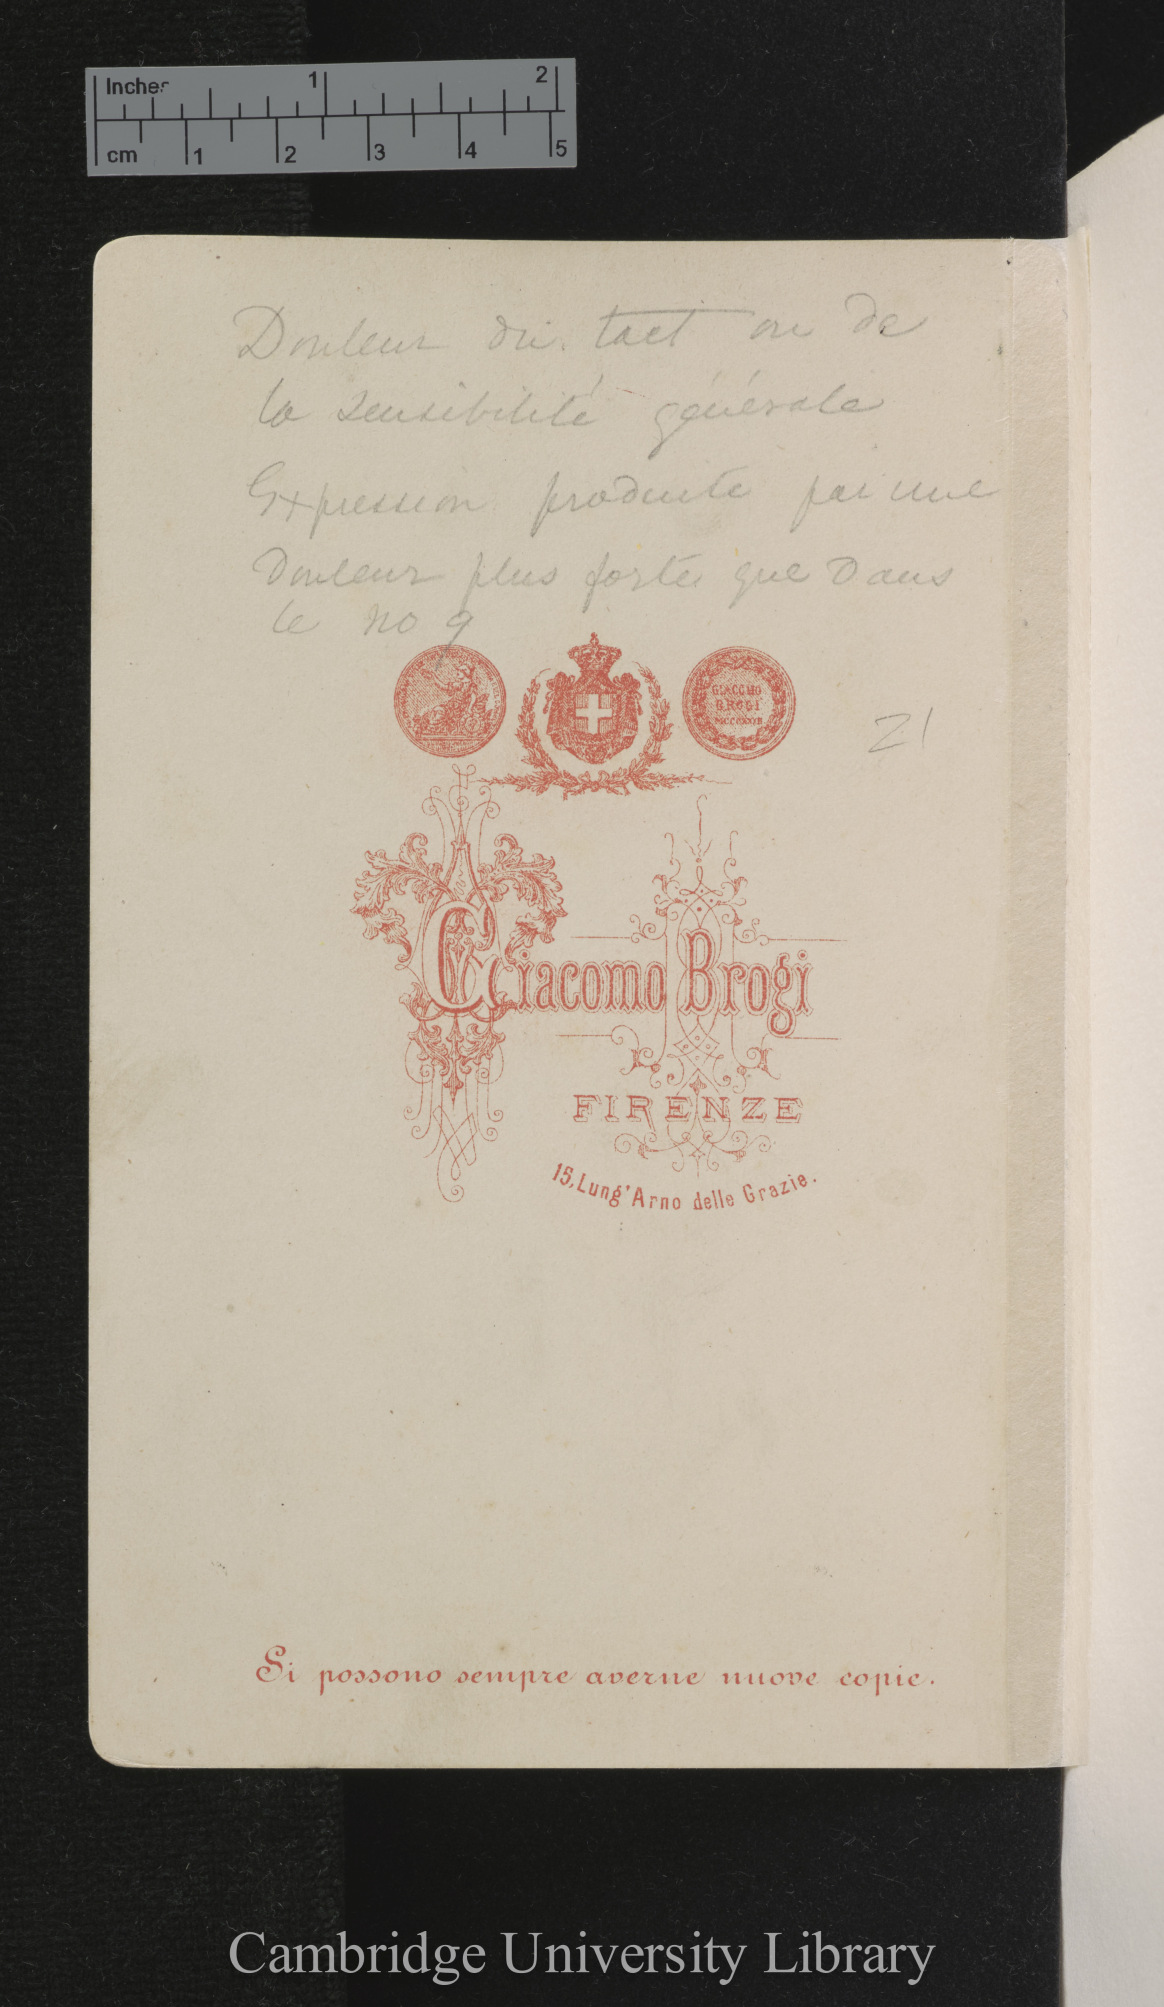 Inches 1 2
cm 1 2 3 4 5
Douleur du tact ou de
la sensibilité générale
Expression produite par une
douleur plus forte que dans
le no 9
GIACOMO
BROGI
21
Giacomo Brogi
FIRENZE
15, Lung'Arno delle Grazie.
Si possono sempre averne nuove copie.
Cambridge University Library